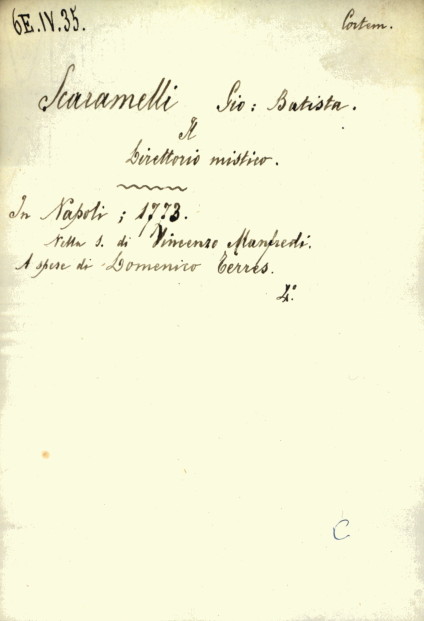 6E.IV.35.
Cortem.
Scaramelli Gio: Batista.
Il
Direttorio mistico.
In Napoli; 1773.
Nella S. di Vincenzo Manfredi.
A spese di Domenico Terres.
4°
C